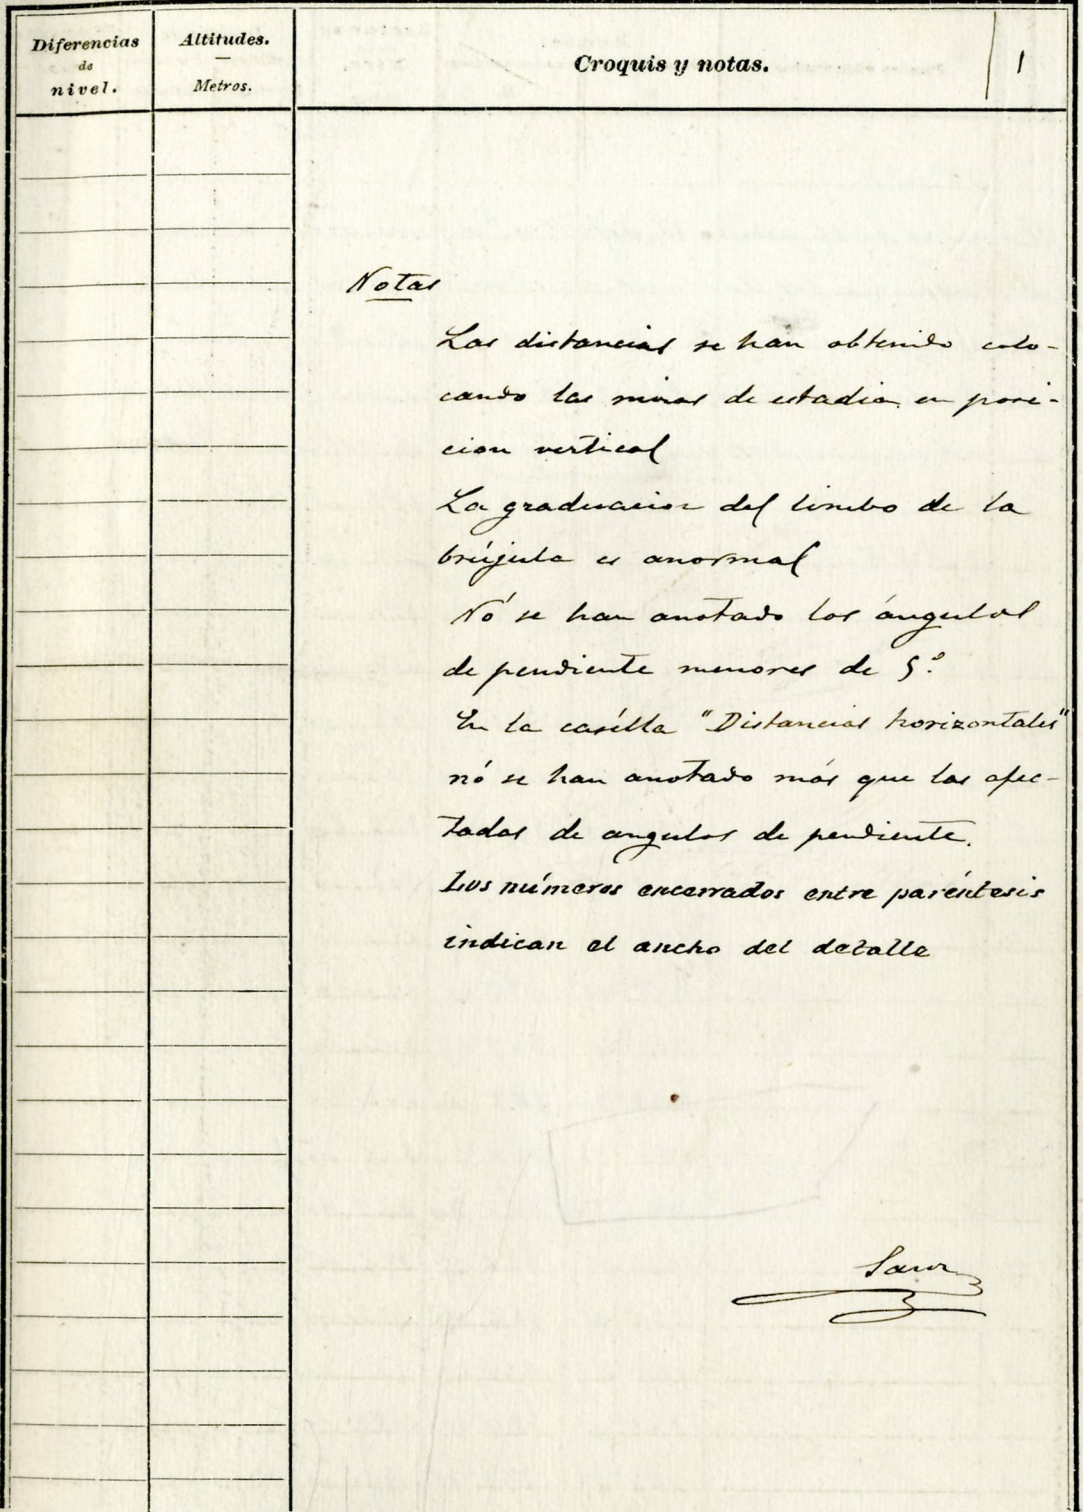 Diferencias
de
nivel.
Altitudes.
Metros.
Croquis y notas.
1
Notas
Las distancias se han obtenido colo-
cando las miras de estadia en posi-
cion vertical
La graduacion del limbo de la
brújula es anormal
Nó se han anotado los ángulos
de pendiente menores de 5º
En la casilla "Distancias horizontales"
nó se han anotado más que las afec-
tadas de angulos de pendiente.
Los números encerrados entre paréntesis
indican el ancho del detalle